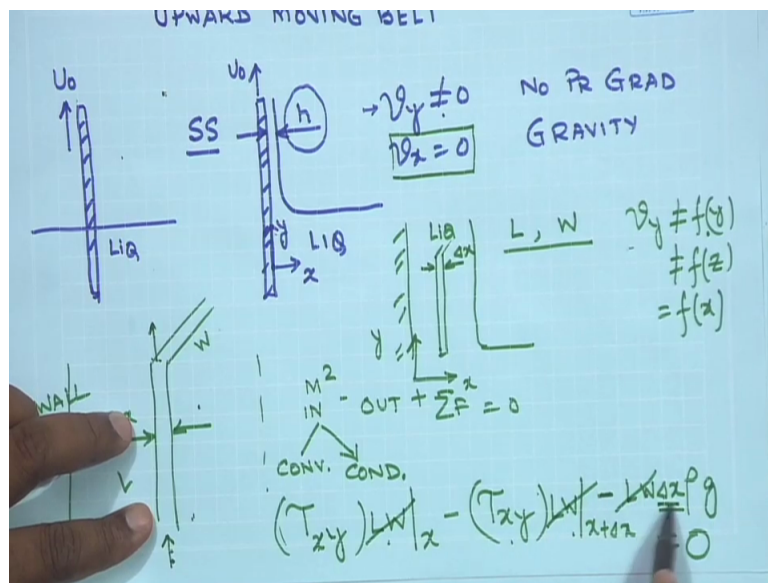 UPWARD MOVING BELT
U0
U0
SS
h
→ vy ≠ 0
vx = 0
NO PR GRAD
GRAVITY
LIQ
y LIQ
x
LIQ
Δx
L, W
vy ≠ f(y)
≠ f(z)
= f(x)
y
x
W
WALL
M² IN - OUT + ΣF = 0
CONV. COND.
(τxy) LW|x - (τxy) LW|x+Δx - LWΔx ρg
= 0